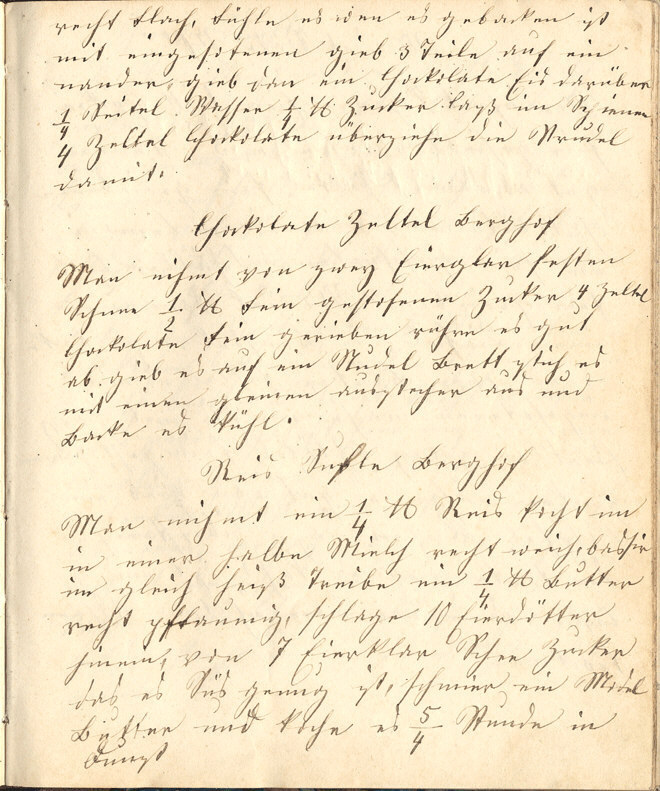 recht flach, fühle es wen es gebacken ist
mit eingesotenen gieb 3 Teile auf ein
nander, gieb dan ein Chockolate Eis darüber
1/4 Seitel Wasser 1/4 ℔ Zucker laß im
4 Zeltel Chockolate überziehe die Strudel
damit.
Chockolate Zeltel Berghof
Man nihmt von zwey Eierglar festen
Schnee 1/2 ℔ fein gestosenen Zucker 4 Zeltel
Chockolate fein gerieben rühre es gut
ab gieb es auf ein Nudel Brett stich es
mit einen gleinen ausstecher aus und
Backe es kühl.
Reis Sufle Berghof
Man nihmt ein 1/4 ℔ Reis kocht im
in einer halbe Milch recht weich, bassir
im gleich heiß Treibe ein 1/4 ℔ Butter
recht pflaumig, schlage 10 Eierdötter
hinein, von 7 Eierklar Schne Zucker
das es Süs genug ist, schmier ein Model
Butter und koche es 5/4 Stunde in
Dunst